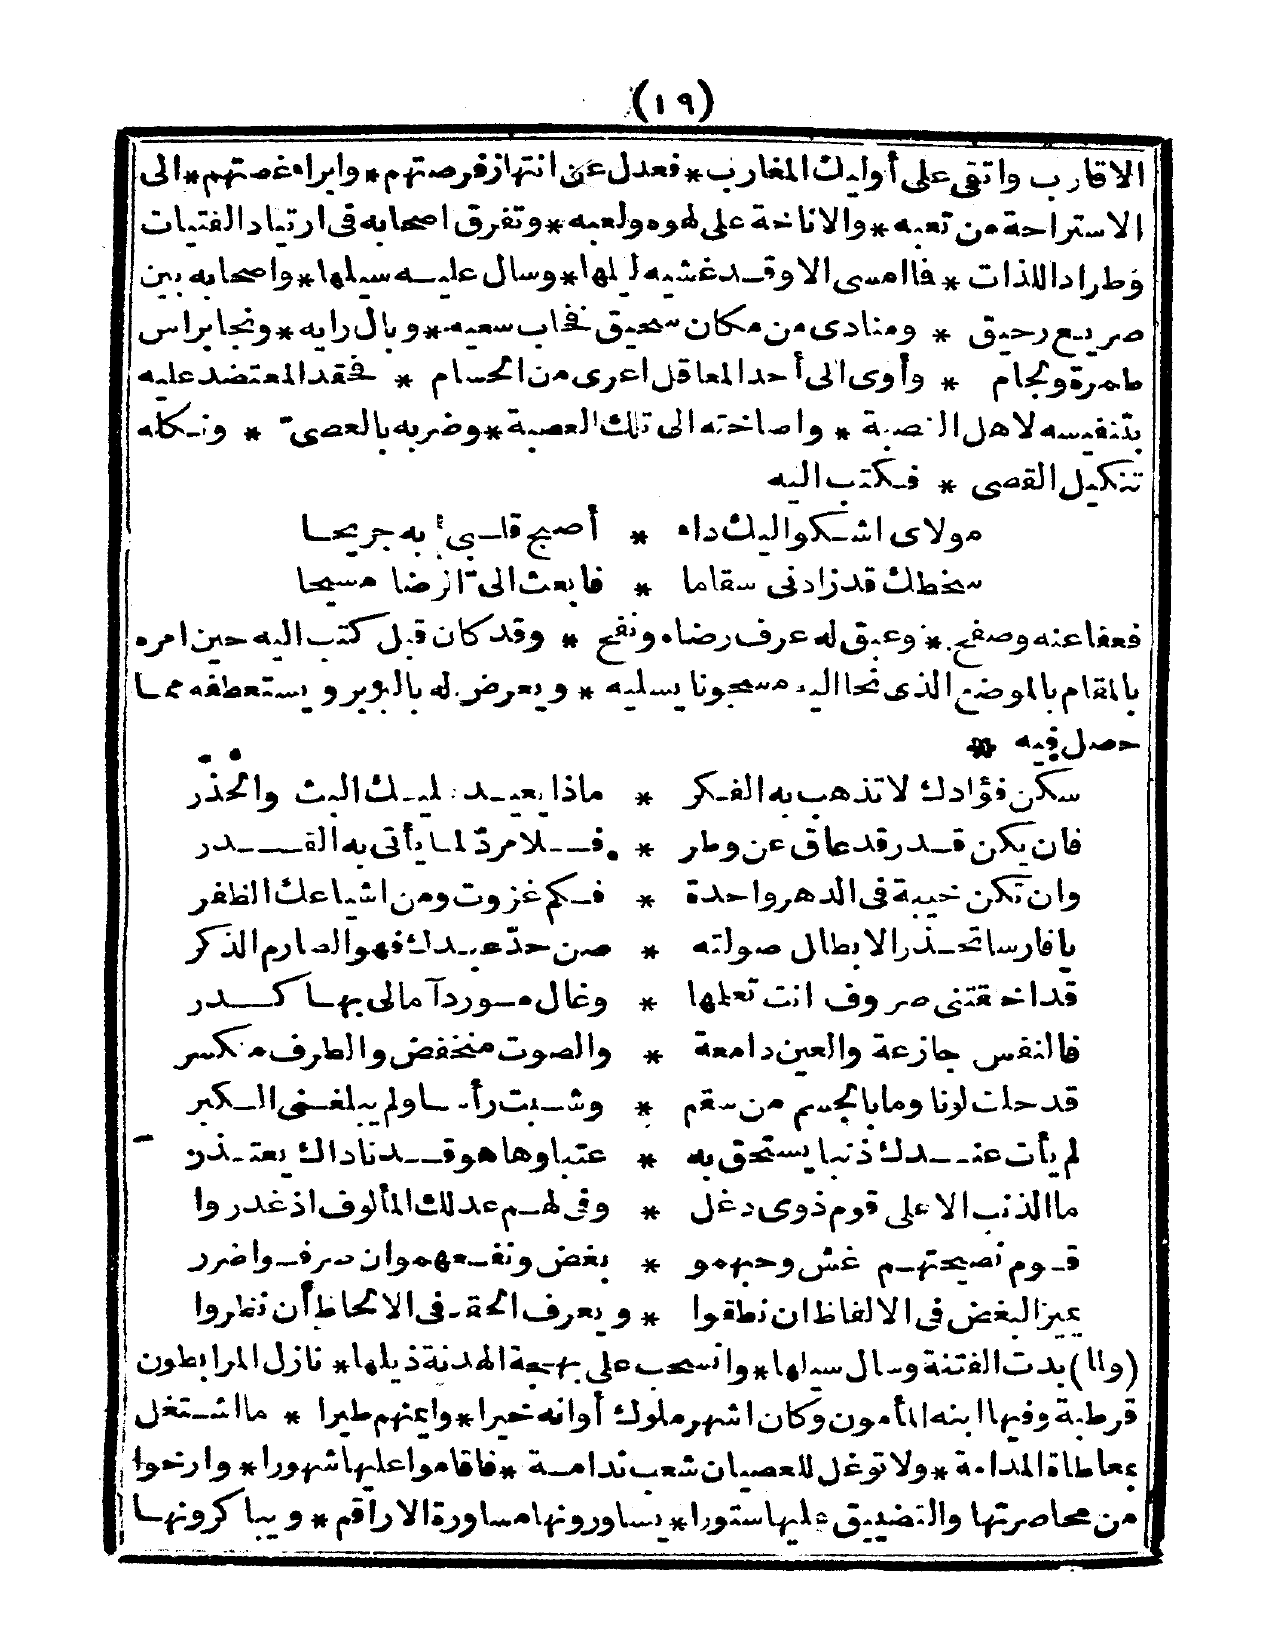 (١٩)
الاقارب واتقى على أوليك المغارب * فعدل عن انتهاز فرصتهم * وابراء غصتهم * الى
الاستراحة من تعبه * والاناخة على لهوه ولعبه * وتفرق اصحابه فى ارتياد الفتيات
وطراد اللذات * فما امسى الا وقد غشيه ليلها * وسال عليه سيلها * واصحابه بين
صريع رحيق * ومنادى من مكان سحيق فخاب سعيه * وبال رايه * ونجا براس
طمرة ولجام * وأوى الى أحد المعاقل اعرى من الحسام * فحقد المعتضد عليه
بتنفيسه لاهل القصبة * واصاخته الى تلك العصبة * وضربه بالعصىّ * ونكله
تنكيل القصى * فكتب اليه
مولاى اشكو اليك داء * أصبح قلبى به جريحا
سخطك قد زادنى سقاما * فابعث الىّ الرضا مسيحا
فعفا عنه وصفح * وعبق له عرف رضاه ونفح * وقد كان قبل كتب اليه حين امره
بالمقام بالموضع الذى نجا اليه مسجونا يسليه * ويعرض له بالبربر ويستعطفه مما
حصل فيه *
سكن فؤادك لا تذهب به الفكر * ماذا يعيد عليك البث والحذر
فان يكن قدر قد عاق عن وطر * فلا مردّ لما يأتى به القدر
وان تكن خيبة فى الدهر واحدة * فكم غزوت ومن اشياعك الظفر
يا فارسا تحذر الابطال صولته * صن حدّ عبدك فهو الصارم الذكر
قد اخفتنى صروف انت تعلمها * وغال موردآ مالى بها كدر
فالنفس جازعة والعين دامعة * والصوت منخفض والطرف منكسر
قد حلت لونا وما بالجسم من سقم * وشبت رأسا ولم يبلغنى الكبر
لم يأت عندك ذنبا يستحق به * عتبا وها هو قد ناداك يعتذر
ما الذنب الا على قوم ذوى دغل * وفى لهم عدلك المألوف اذ غدروا
قوم نصيحتهم غش وحبهمو * بغض ونفعهمو ان صرفوا ضرر
يميز البغض فى الالفاظ ان نطقوا * ويعرف الحقد فى الالحاظ أن نظروا
(ولما) بدت الفتنة وسال سيلها * وانسحب على بهجة الهدنة ذيلها * نازل المرابطون
قرطبة وفيها ابنه المأمون وكان اشهر ملوك أوانه خيرا * وايمنهم طيرا * ما اشتغل
بمعاطاة المدامة * ولا توغل للعصيان شعب ندامة * فاقاموا عليها شهورا * وارخوا
من محاصرتها والتضييق عليها ستورا * يساورونها مساورة الاراقم * ويباكرونها